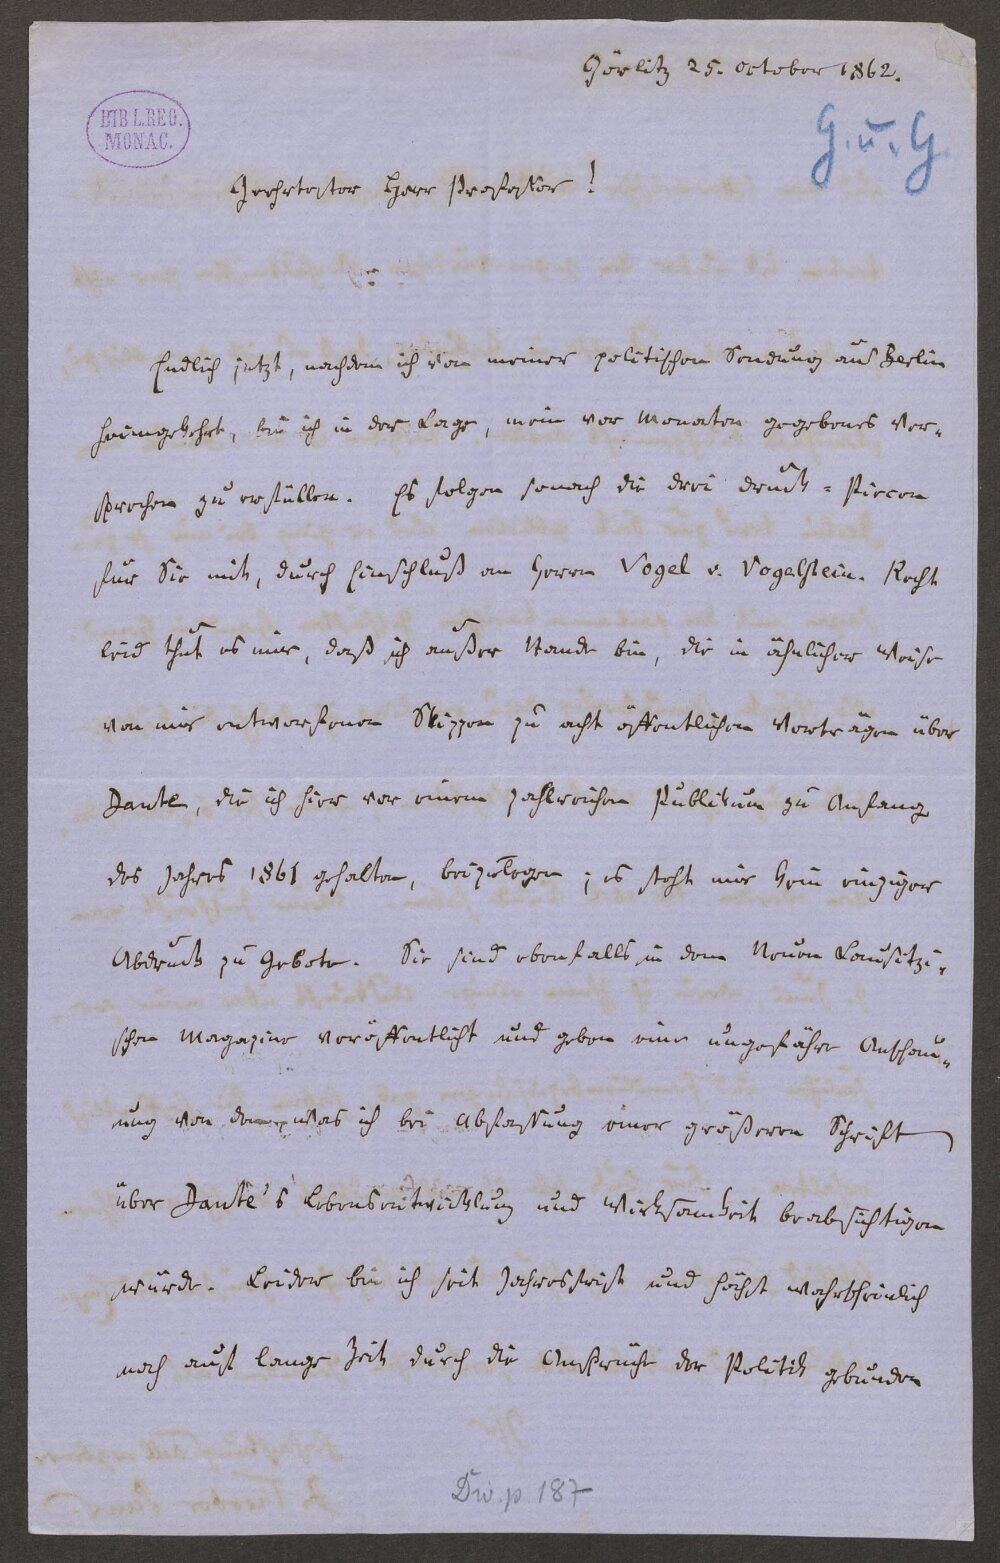 Görlitz 25. October 1862.
BIBL.REG.
MONAC.
G. u. G
Geehrtester Herr Professor!
Endlich jetzt, nachdem ich von meiner politischen Sendung aus Berlin
heimgekehrt, bin ich in der Lage, mein vor Monaten gegebenes Ver-
sprechen zu erfüllen. Es folgen sonach die drei Druck-Piecen
für Sie mit, durch Einschluß an Herrn Vogel v. Vogelstein. Recht
leid thut es mir, daß ich außer Stande bin, die in ähnlicher Weise
von mir entworfenen Skizzen zu acht öffentlichen Vorträgen über
Dante, die ich hier vor einem zahlreichen Publikum zu Anfang
des Jahres 1861 gehalten, beizulegen; es steht mir kein einziger
Abdruck zu Gebote. Sie sind ebenfalls in dem Neuen Lausitzi-
schen Magazine veröffentlicht und geben eine ungefähre Anschau-
ung von dem, was ich bei Abfassung einer größeren Schrift
über Dante's Lebensentwicklung und Wirksamkeit beabsichtigen
würde. Leider bin ich seit Jahresfrist und höchst wahrscheinlich
noch auf lange Zeit durch die Ansprüche der Politik gebunden
Div. p. 187